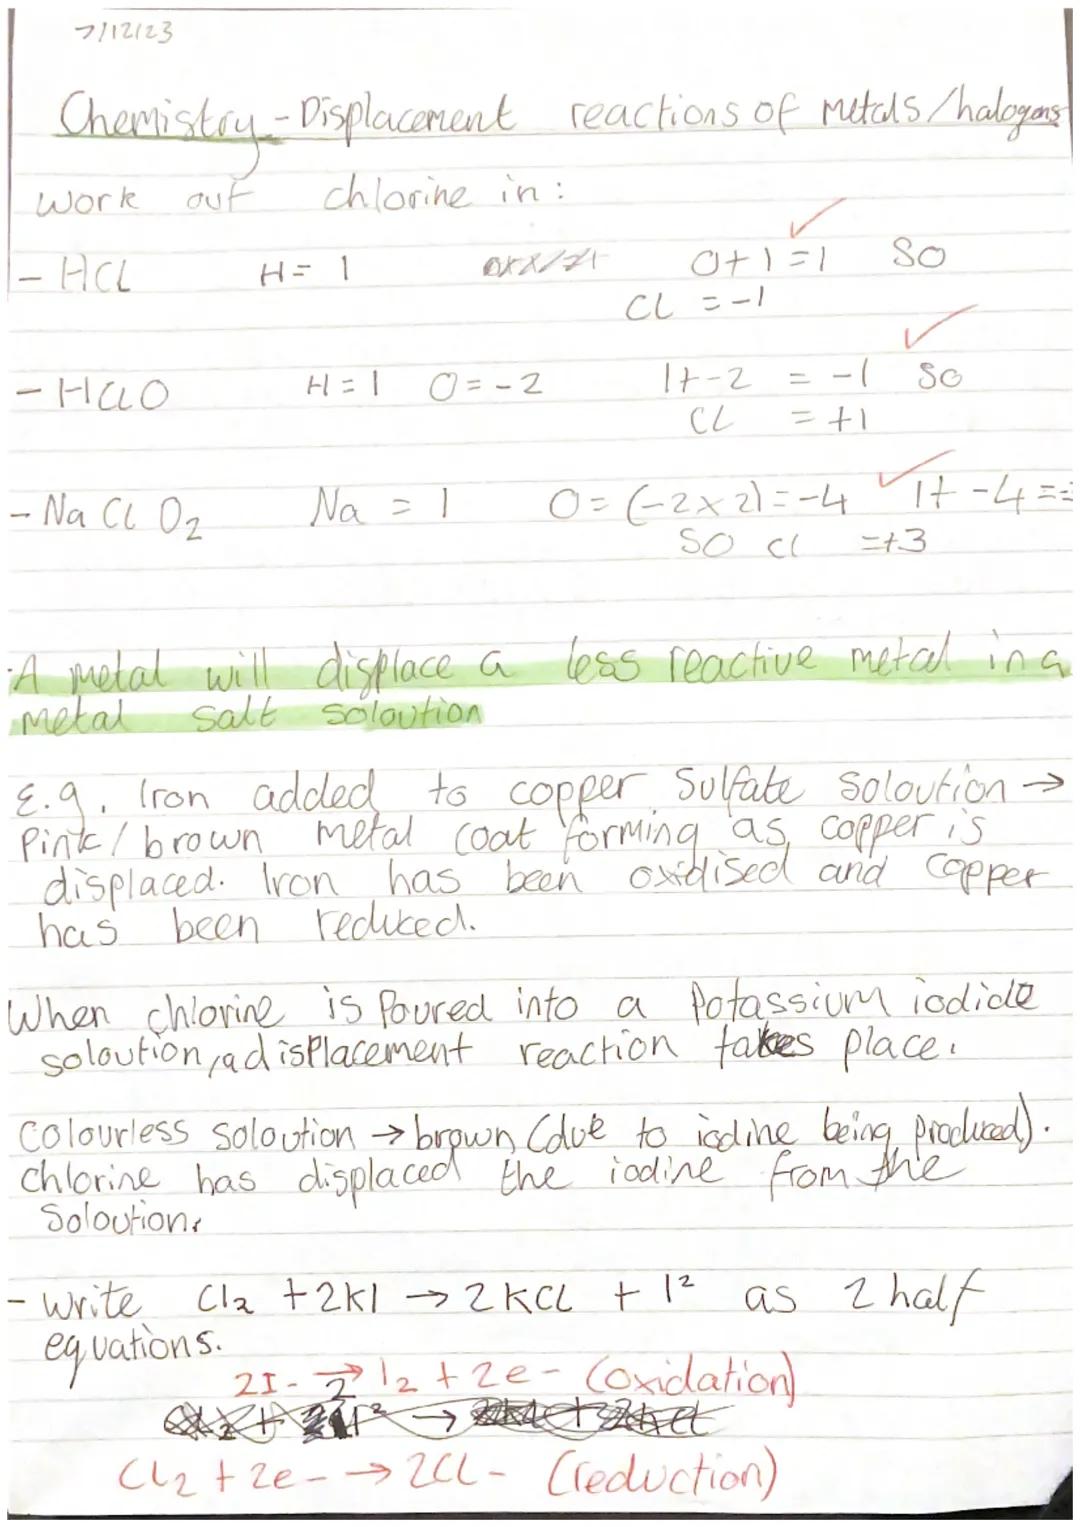 7/12/23
Chemistry - Displacement reactions of metals/halogens
Work out chlorine in:
- HCL H = 1 0+1=1 SO
CL = -1
- HClO H=1 O=-2 1+-2 = -1 SO
CL = +1
- Na Cl O2 Na = 1 O= (-2x2)=-4 1+ -4 =-
SO cl =+3
·A metal will displace a less reactive metal in a
metal salt soloution
E.g. Iron added to copper Sulfate soloution →
Pink/brown metal coat forming as copper is
displaced. Iron has been oxidised and copper
has been reduced.
When chlorine is Poured into a Potassium iodide
soloution, a displacement reaction takes place.
Colourless soloution → brown (due to iodine being produced).
Chlorine has displaced the iodine from the
Soloution.
- Write Cl2 +2KI → 2KCL + I² as 2 half
equations.
2I- → I2 + 2e- (oxidation)
CL2 + 2e- → 2CL- (reduction)